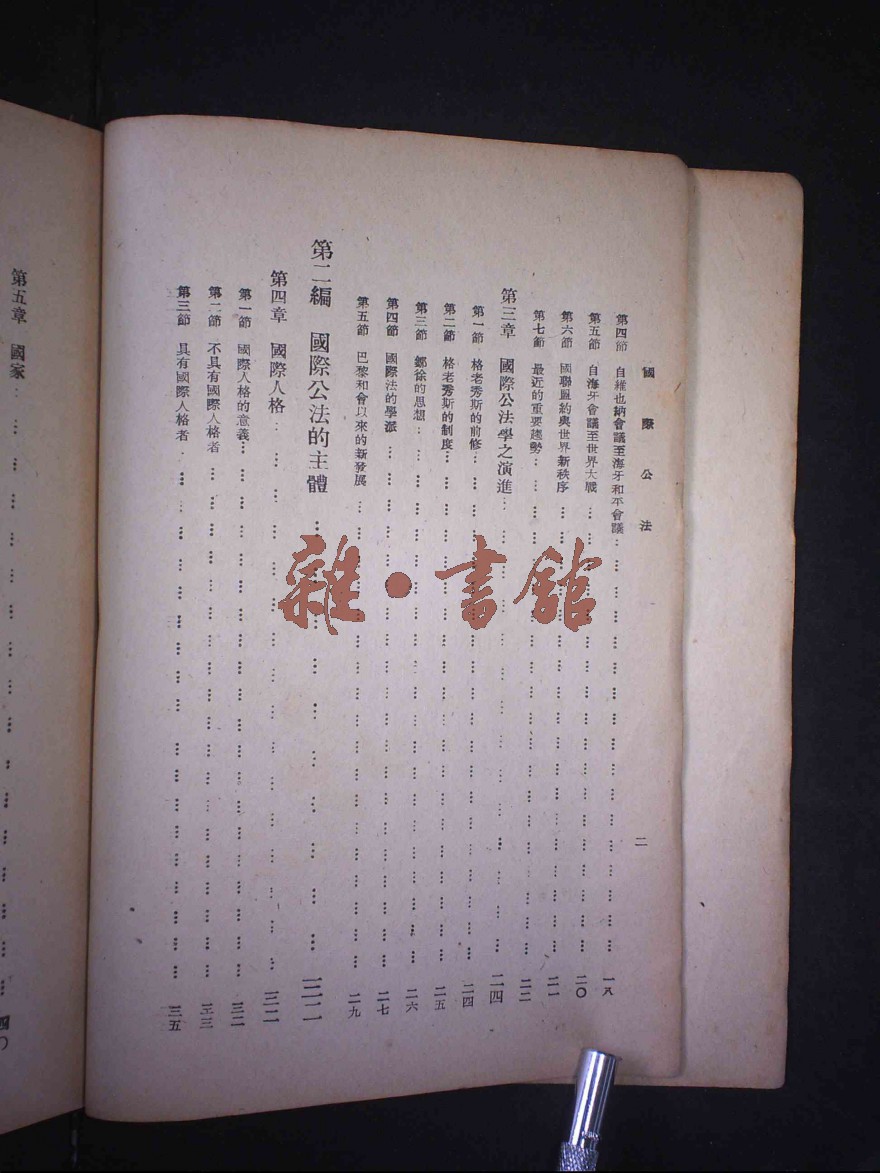 國際公法
二
第四節 自維也納會議至海牙和平會議 一八
第五節 自海牙會議至世界大戰 二〇
第六節 國聯盟約與世界新秩序 二一
第七節 最近的重要趨勢 二二
第三章 國際公法學之演進 二四
第一節 格老秀斯的前修 二四
第二節 格老秀斯的制度 二五
第三節 鄒徐的思想 二六
第四節 國際法的學派 二七
第五節 巴黎和會以來的新發展 二九
第二編 國際公法的主體 三二
第四章 國際人格 三二
第一節 國際人格的意義 三二
第二節 不具有國際人格者 三三
第三節 具有國際人格者 三五
第五章 國家 四〇
雜·書館